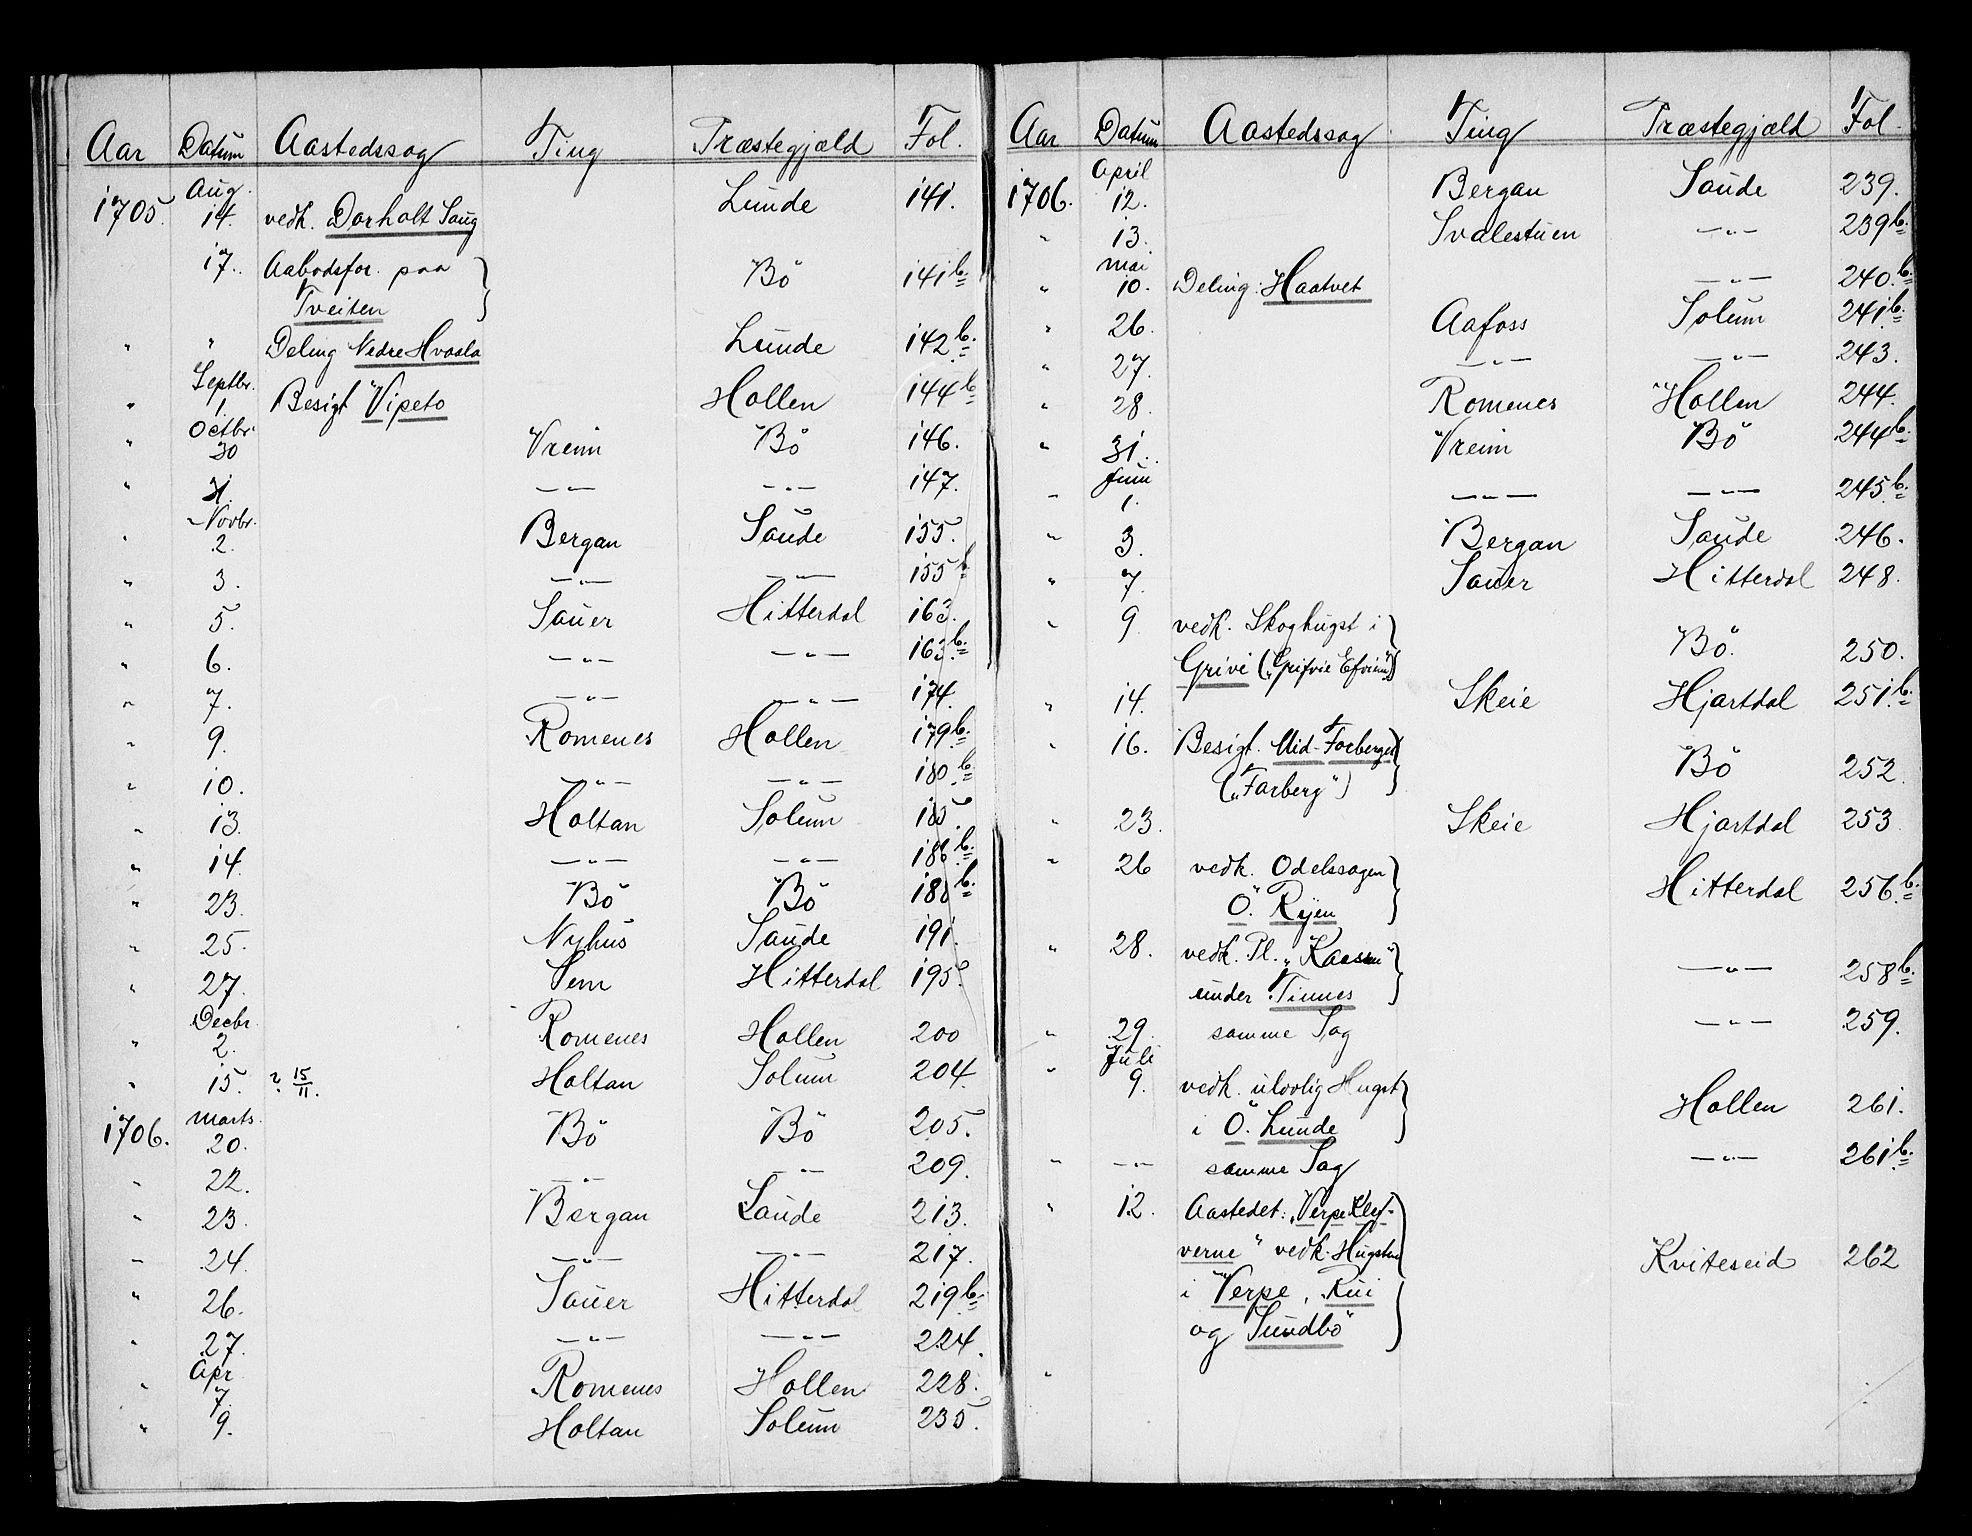 Aar Datum Aastedssag Ting Præstegjæld Fol.
1705. Aug. 14. vedk. Dorholt Saug Lunde 141.
17. Aabodsfor. paa Bö 141 b.
Tveiten
" " Deling Nedre Hvaala Lunde 142 b.
" Septbr. 1. Besigt Vipeto Hollen 144 b.
" Octbr. 30 Vreim Bö 146.
" 31. —"— —"— 147.
" Novbr. 2. Bergan Saude 155.
" 3. —"— —"— 155 b
" 5. Sauer Hitterdal 163.
" 6. —"— —"— 163 b.
" 7. —"— —"— 174.
" 9. Romenes Hollen 179 b.
" 10. —"— —"— 180 b.
" 13. Holtan Solum 185.
" 14. —"— —"— 186 b.
" 23. Bö Bö 188 b.
" 25. Nyhus Saude 191.
" 27. Sem Hitterdal 195.
" Decbr. 2. Romenes Hollen 200
" 15. ? 15/11. Holtan Solum 204
1706. Marts. 20. Bö Bö 205.
" 22. —"— —"— 209.
" 23. Bergan Saude 213.
" 24. —"— —"— 217.
" 26. Sauer Hitterdal 219 b.
" 27. —"— —"— 224.
" Apr. 7. Romenes Hollen 228.
" 9. Holtan Solum 235.
Aar Datum Aastedssag Ting Præstegjæld Fol.
1706. April 12. Bergan Saude 239.
" 13. Svalestuen —"— 239 b.
" Mai 10. Deling: Haatvet —"— 240. b.
" 26. Aafoss Solum 241 b.
" 27. —"— —"— 243.
" 28. Romenes Hollen 244.
" 31. Vreim Bö 244 b.
" Juni 1. —"— —"— 245. b.
" 3. Bergan Saude 246.
" 7. Sauer Hitterdal 248.
" 9. vedk. Skoghugst i
Grivi („Grifvie Efvrem") Bö. 250.
" 14. Skeie Hjartdal 251. b.
" 16. Besigt. Mid-Forberget
(„Farberg") Bö 252.
" 23. Skeie Hjartdal 253
" 26 vedk. Odelssagen
Ö. Ryen Hitterdal 256. b.
" 28. vedk. Pl. „Kaasen"
under Tinnes —"— 258 b.
" 29. samme Sag —"— 259.
" Juli 9. vedk. ulovlig Hugst
i Ö. Lunde Hollen 261.
" —"— samme Sag —"— 261 b.
" 12. Aastedet: „Verpe Klef-
verne" vedk. Hugsten
i Verpe, Rui Kviteseid 262
og Sundbö
"